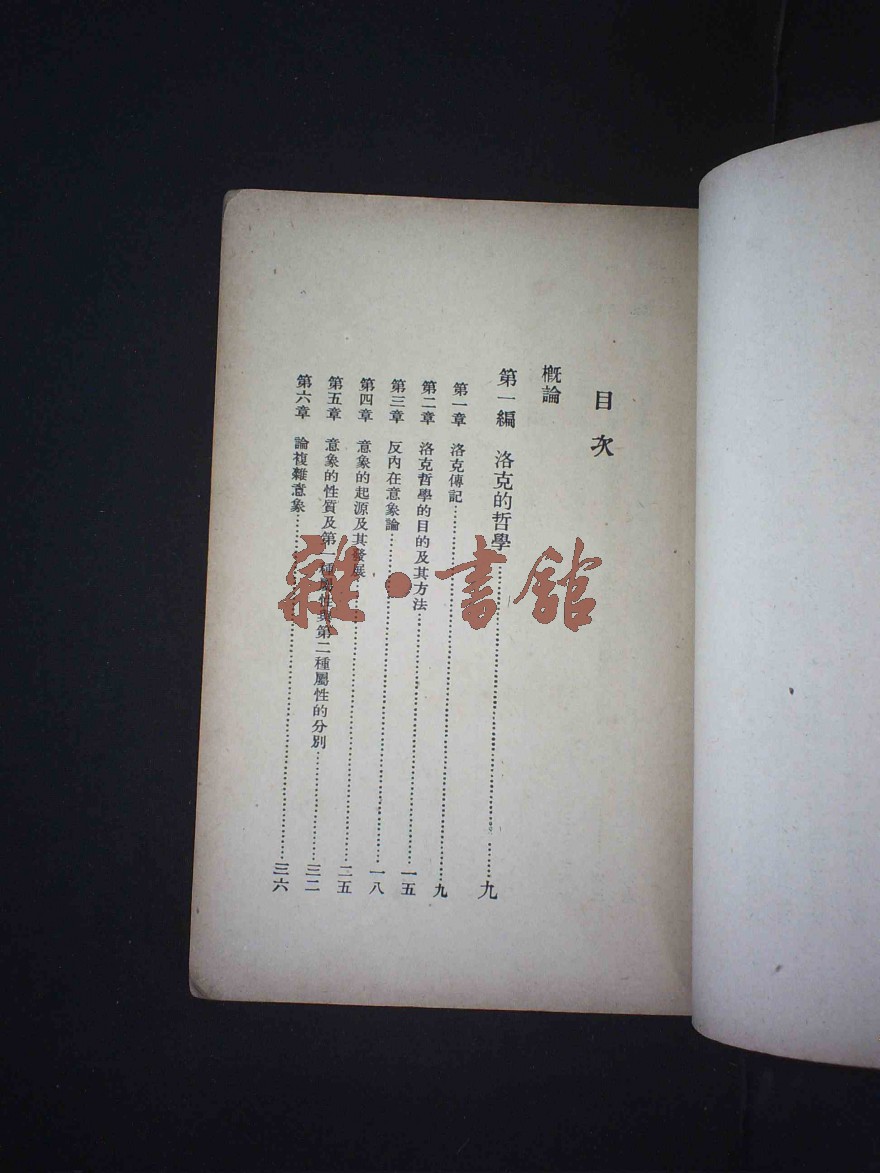 目次
概論
第一編　洛克的哲學……九
第一章　洛克傳記……九
第二章　洛克哲學的目的及其方法……一五
第三章　反內在意象論……一八
第四章　意象的起源及其發展……二五
第五章　意象的性質及第一種屬性與第二種屬性的分別……三二
第六章　論複雜意象……三六
雜·書館